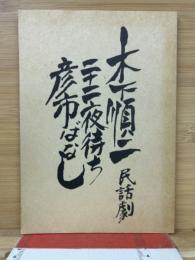 木下順二
民話劇
二十二夜待ち
彦市ばなし